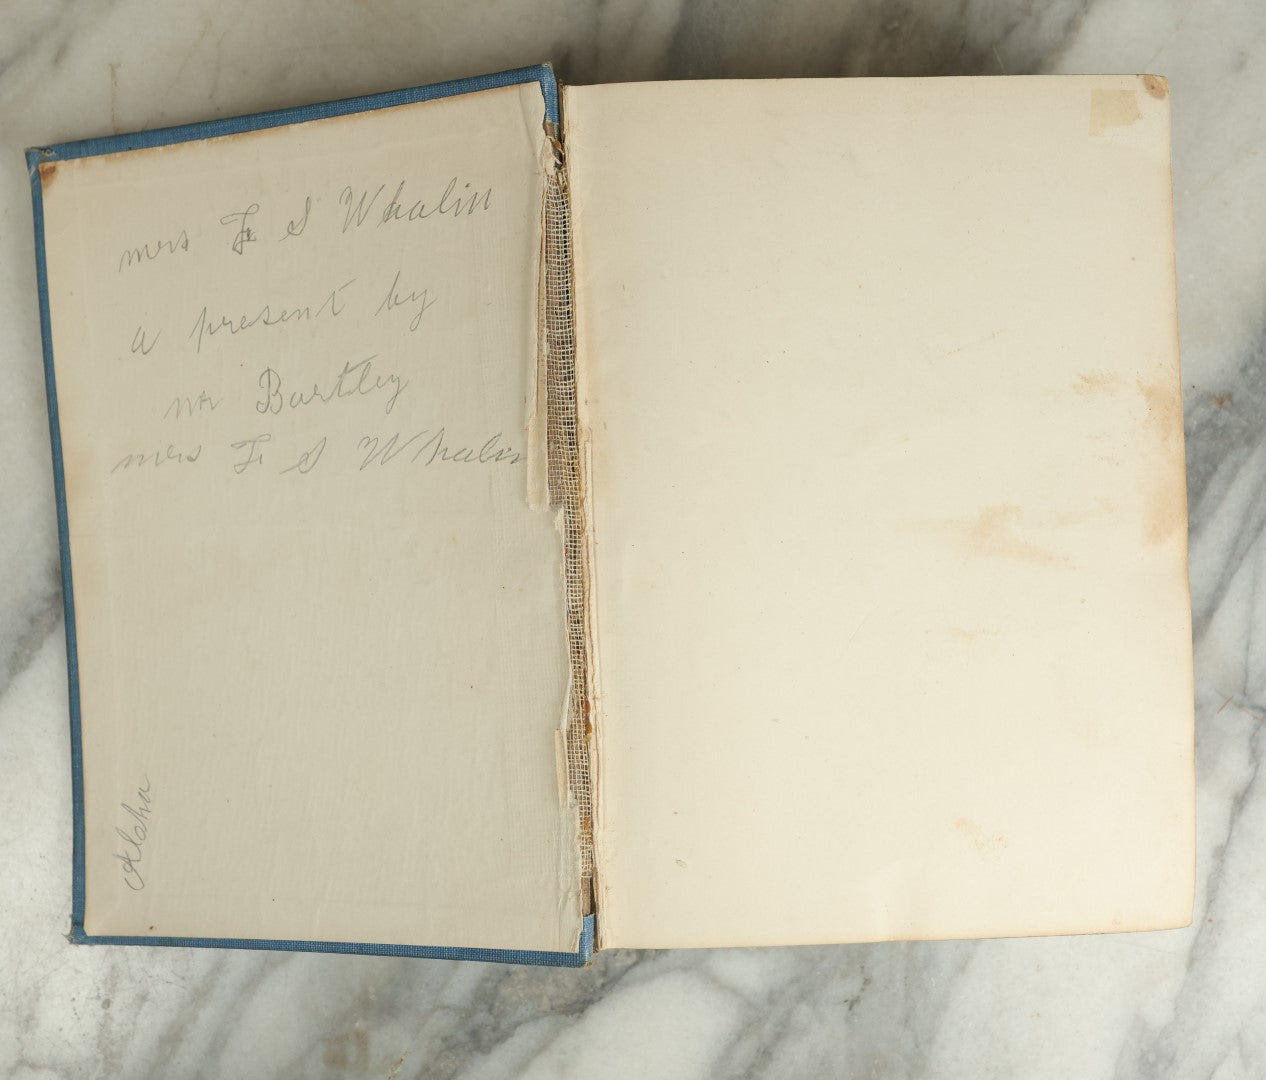 mrs F S Whalin
a present by
mr Bartley
mrs F S Whalin
Aloha